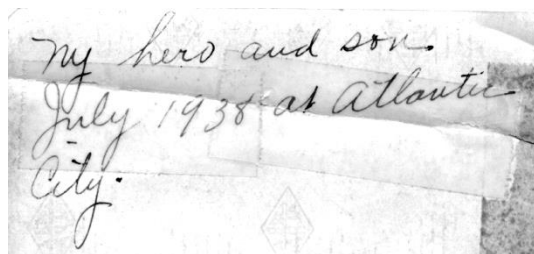 My hero and son.
July 1938 at Atlantic
City.